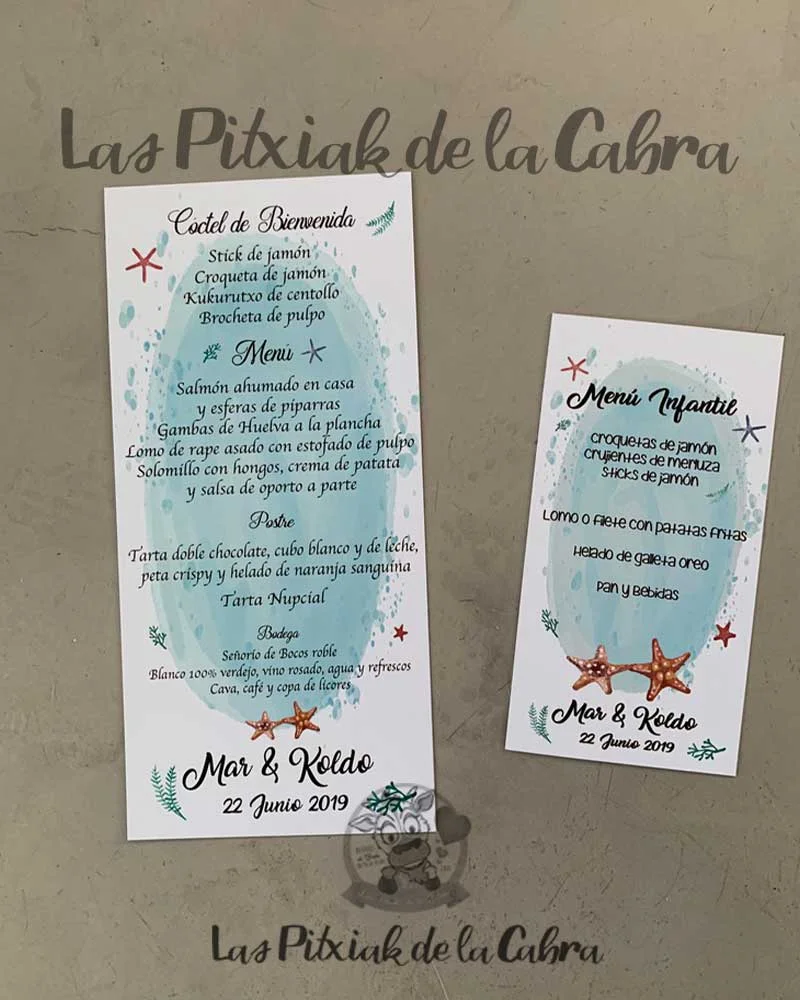 Las Pitxiak de la Cabra
Cóctel de Bienvenida
Stick de jamón
Croqueta de jamón
Kukurutxo de centollo
Brocheta de pulpo
Menú
Salmón ahumado en casa
y esferas de piparras
Gambas de Huelva a la plancha
Lomo de rape asado con estofado de pulpo
Solomillo con hongos, crema de patata
y salsa de oporto a parte
Postre
Tarta doble chocolate, cubo blanco y de leche,
peta crispy y helado de naranja sanguina
Tarta Nupcial
Bodega
Señorío de Bocos roble
Blanco 100% verdejo, vino rosado, agua y refrescos
Cava, café y copa de licores
Mar & Koldo
22 Junio 2019
Menú Infantil
Croquetas de jamón
Crujientes de merluza
Sticks de jamón
Lomo o filete con patatas fritas
Helado de galleta oreo
Pan y Bebidas
Mar & Koldo
22 Junio 2019
Las Pitxiak de la Cabra